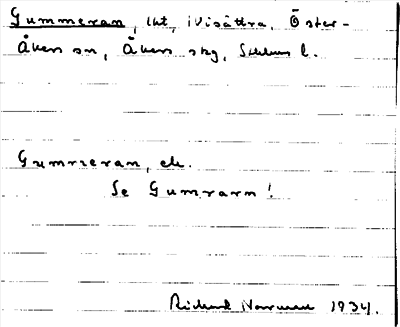 Gummeran, lht, Visättra, Öster-
Åkers sn, Åkers skg, Sthlms l.
Gummeran, el.
Se Gumrarn!
Rickard Norman 1934.